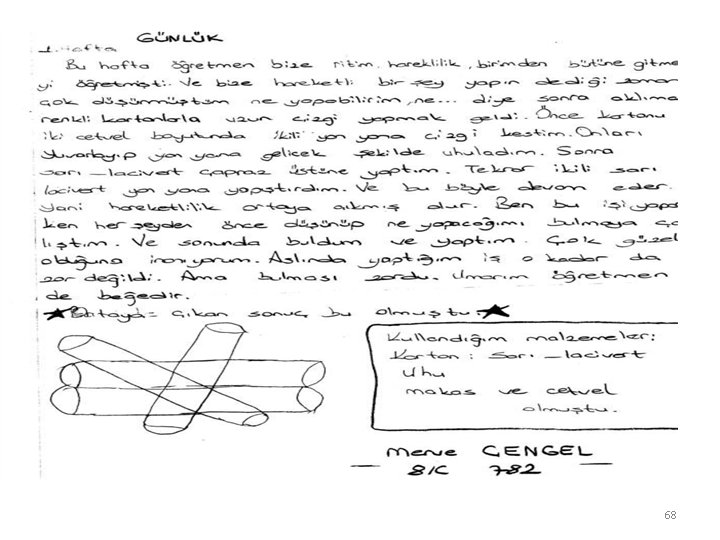 GÜNLÜK
1. Hafta
Bu hafta öğretmen bize ritim, hareklilik, birimden bütüne gitme
yi öğretmişti. Ve bize hareketli bir şey yapın dediği zaman
çok düşünmüştüm ne yapabilirim, ne... diye sonra aklıma
renkli kartonlarla uzun çizgi yapmak geldi. Önce kartonu
iki cetvel boyutunda ikili yan yana çizgi kestim. Onları
yuvarlayıp yan yana gelicek şekilde uhuladım. Sonra
sarı - lacivert çapraz üstüne yaptım. Tekrar ikili sarı
lacivert yan yana yapıştırdım. Ve bu böyle devam eder.
Yani hareketlilik ortaya çıkmış olur. Ben bu işi yapar
ken herşeyden önce düşünüp ne yapacağımı bulmaya ça
lıştım. Ve sonunda buldum ve yaptım. Çok güzel
olduğuna inanıyorum. Aslında yaptığım iş o kadar da
zor değildi. Ama bulması zordu. Umarım öğretmen
de beğedir.
★ Ortaya çıkan sonuç bu olmuştu. ★
Kullandığım malzemeler:
Karton: Sarı - lacivert
Uhu
makas ve cetvel
olmuştu.
Merve ÇENGEL
8/C 782
68